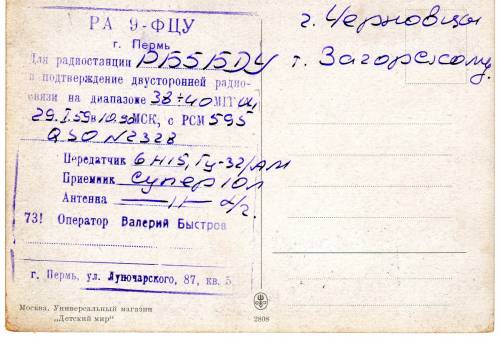 РА 9-ФЦУ
г. Пермь
Для радиостанции РБ5БДУ
в подтверждение двусторонней радио-
связи на диапазоне 38÷40 МГГЦ
29.I.59 в 10.30 МСК, с РСМ 595
QSO N2328
Передатчик 6Н15, Гу-32/АМ
Приемник Супер 10л
Антенна —„—
73! Оператор Валерий Быстров
г. Пермь, ул. Луночарского, 87, кв. 5
Москва, Универсальный магазин
„Детский мир"
2808
г. Черновцы
т. Загорскому